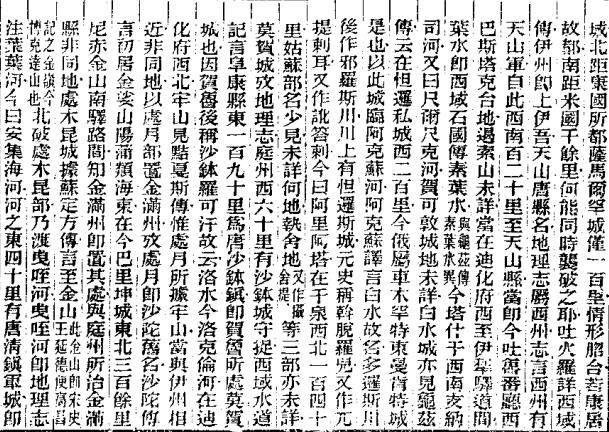 城北距東國所都薩馬爾罕城僅一百里情形脗合若康居
故都南距米國千餘里何能同時襲破之耶吐火羅詳西域
傳伊州卽上伊吾天山唐縣名地理志屬西州志言西州有
天山軍自此西南百二十里至天山縣當卽今吐魯番廳西
巴斯塔克台地過素山未詳當在迪化府西至伊犁驛道間
葉水卽西域石國傳素葉水與龜茲傳素葉水異今塔什干西南支納
司河又曰尺爾尺克河賀可敦城地未詳白水城亦見龜茲
傳云在怛邏私城西二百里今俄屬車木罕特東曼肯特城
是也以此城臨阿克蘇河阿克蘇譯言白水故名多邏斯川
後作邪羅斯川川上有怛邏斯城元史稱斡脫羅兒又作兀
提剌耳又作訛答剌今曰阿里阿塔在千泉西北一百四十
里姑蘇部名少見未詳何地執舍地又作攝舍提等三部亦未詳
莫賀城攷地理志庭州西六十里有沙鉢城守捉西域水道
記言阜康縣東一百九十里爲唐沙鉢鎮卽賀魯所處莫賀
城也因賀魯後稱沙鉢羅可汗故云洛水今洛克倫河在迪
化府西北牢山見黠戛斯傳惟處月所據牢山當與伊州相
近非同地以處月部置金滿州攷處月卽沙陀舊名沙陀傳
言初居金娑山陽蒲類海東在今巴里坤城東北三百餘里
尼赤金山南驛路間知金滿州卽置其處與庭州所治金滿
縣非同地處木昆城據蘇定方傳言至金山此金山卽宋史王延德使高昌
記之金嶺今博克達山也北破處木昆部乃渡曳咥河曳咥河卽地理志
注葉葉河今曰安集海河河之東四十里有唐清鎮軍城卽